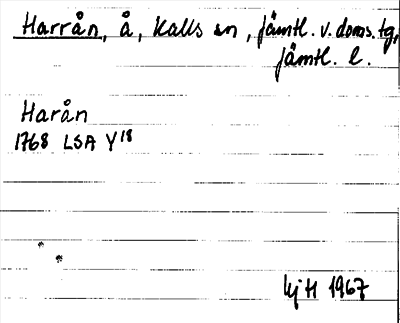 Harrån, å, Kalls sn, Jämtl. v. doms. tg,
Jämtl. l.
Harån
1768 LSA Y18
hjH 1967